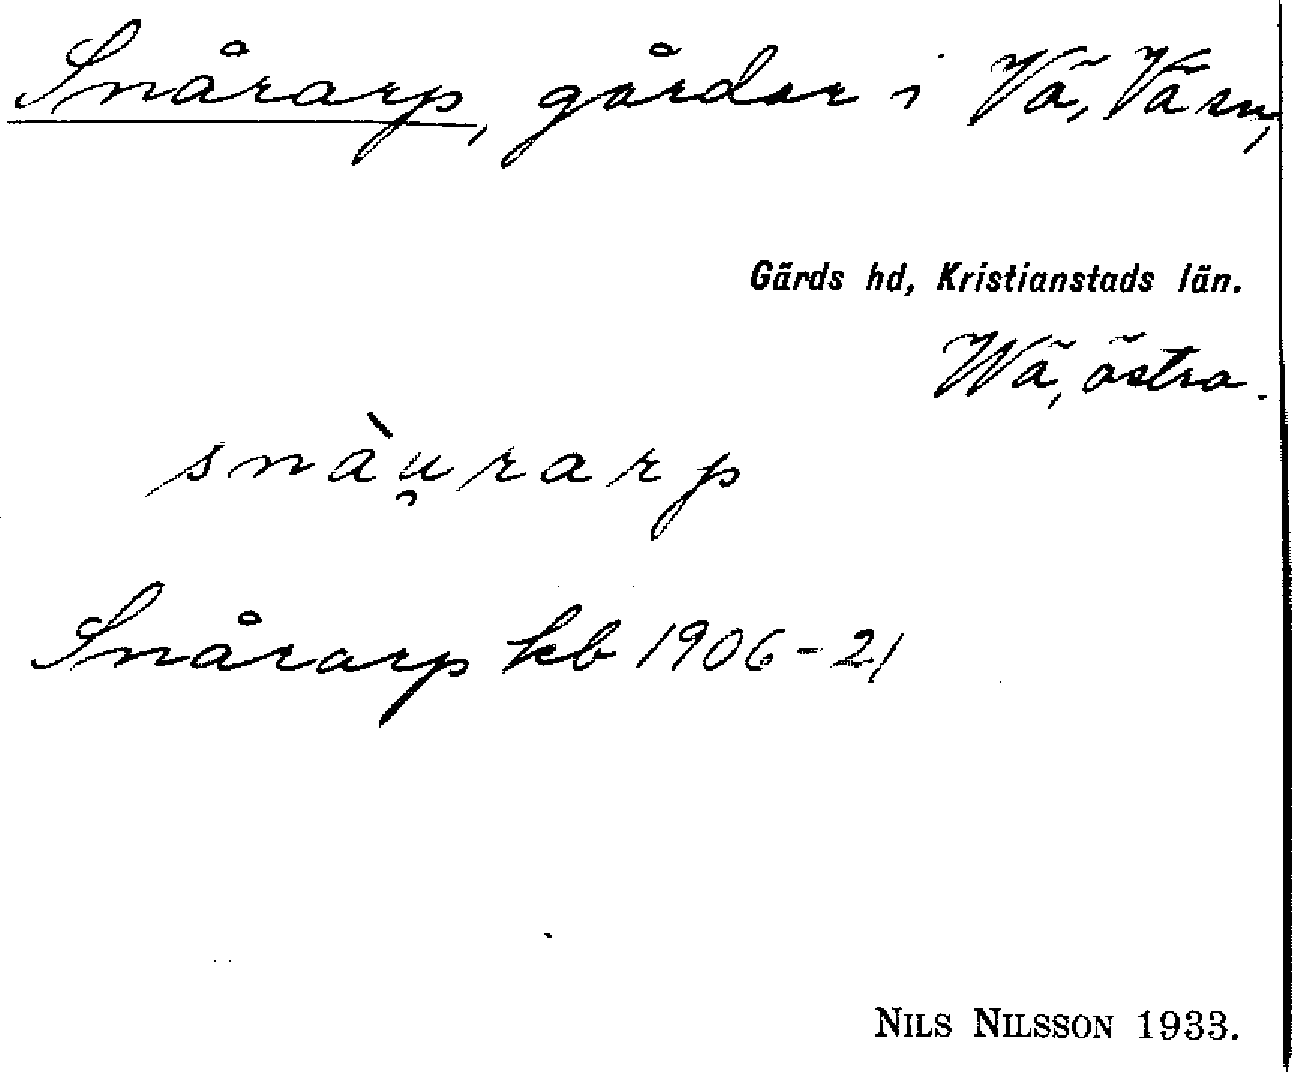 Snårarp, gårdar i Vä, Vä sn,
Gärds hd, Kristianstads län.
Wä, östra.
snàu̯rarp
Snårarp kb 1906-21
NILS NILSSON 1933.